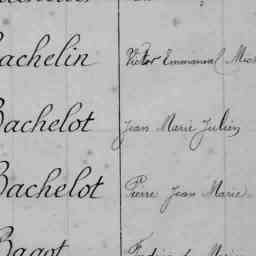 Bachelin Victor Emmanuel
Bachelot Jean Marie Julien
Bachelot Pierre Jean Marie
Bagot